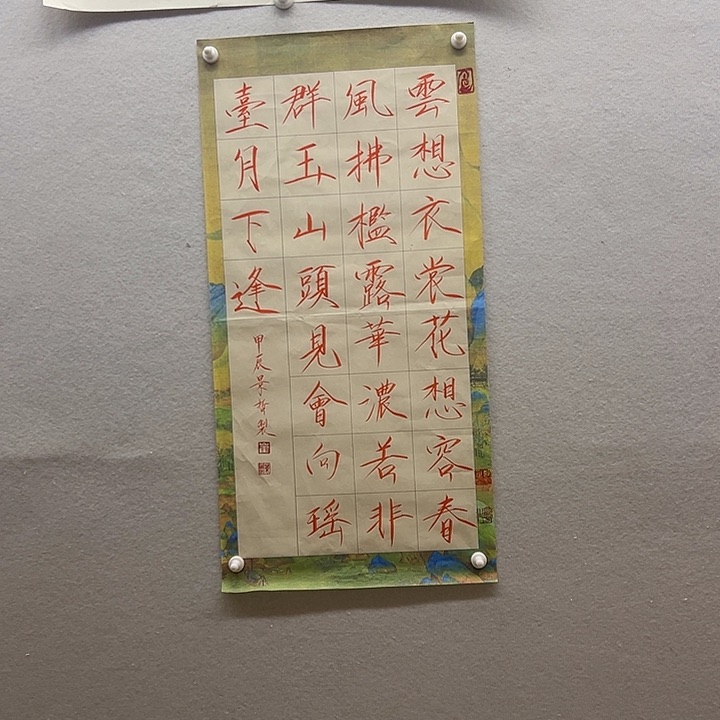 雲想衣裳花想容春
風拂檻露華濃若非
群玉山頭見會向瑶
臺月下逢
甲辰景哲製